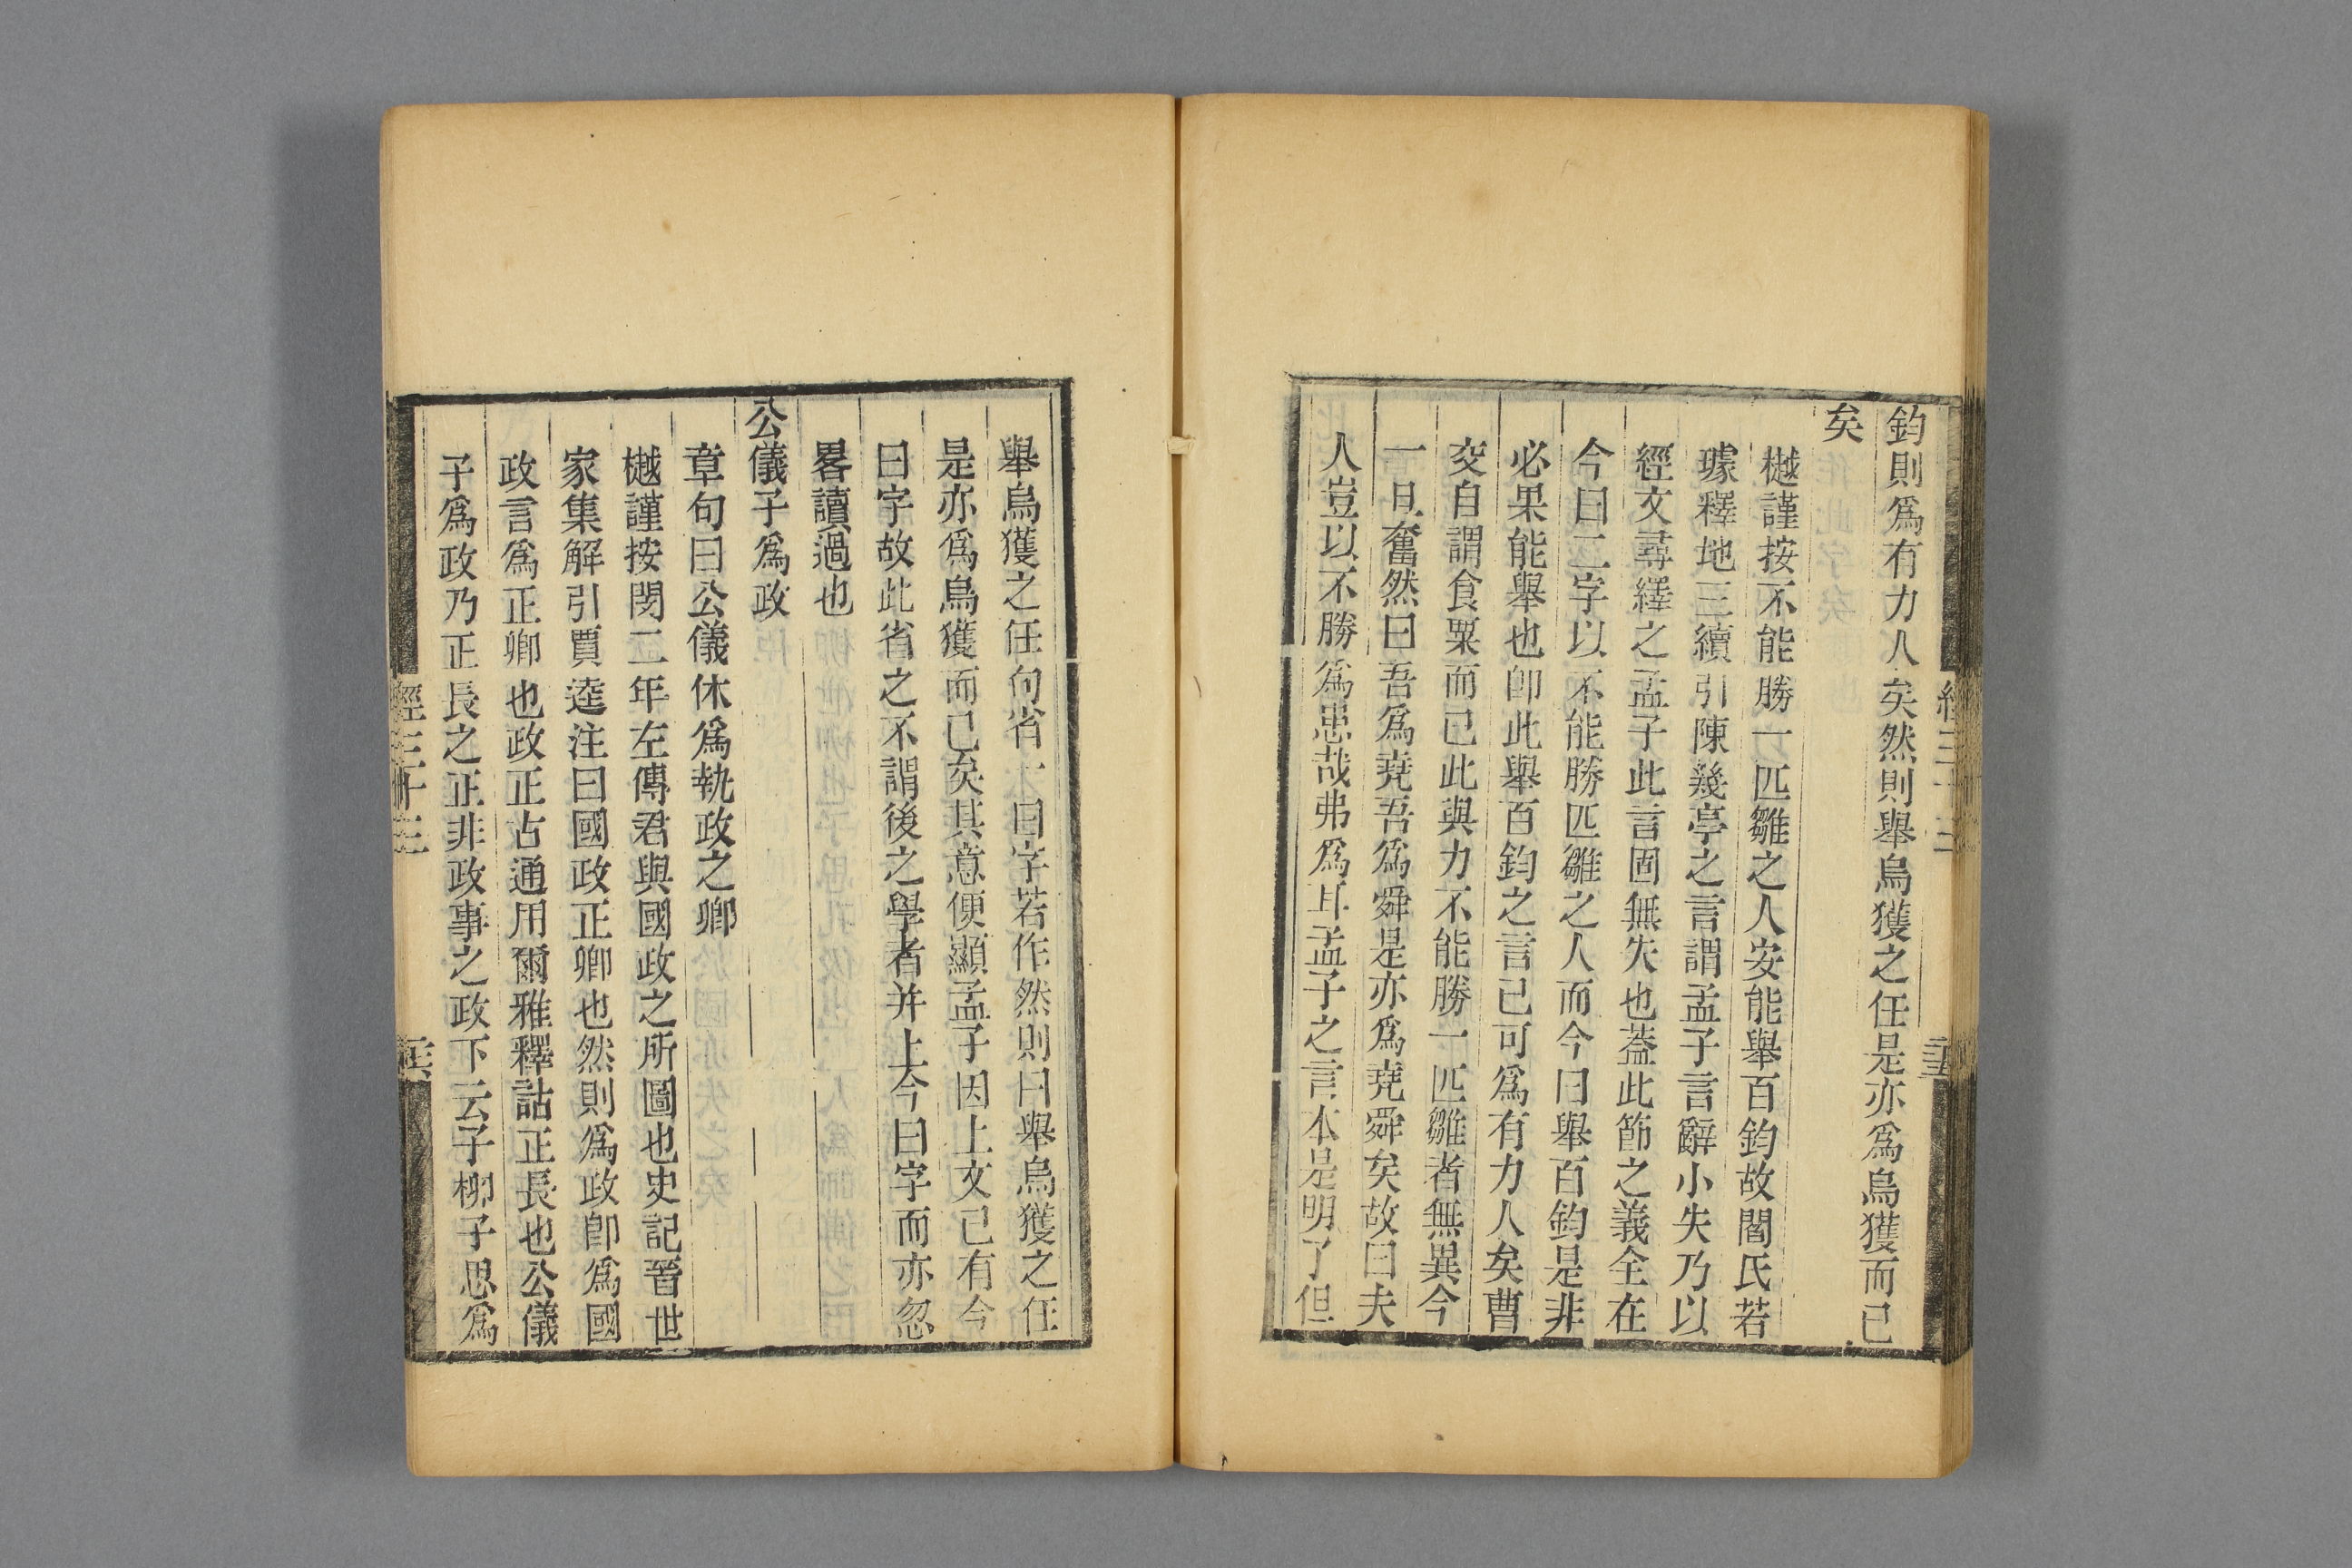 鈞則爲有力人矣然則舉烏獲之任是亦爲烏獲而已
矣
樾謹按不能勝一匹雛之人安能舉百鈞故閻氏若
璩釋地三續引陳幾亭之言謂孟子言辭小失乃以
經文尋繹之孟子此言固無失也葢此節之義全在
今曰二字以不能勝匹雛之人而今曰舉百鈞是非
必果能舉也卽此舉百鈞之言已可爲有力人矣曹
交自謂食粟而已此與力不能勝一匹雛者無異今
一旦奮然曰吾爲堯吾爲舜是亦爲堯舜矣故曰夫
人豈以不勝爲患哉弗爲耳孟子之言本是明了但
舉烏獲之任句省一曰字若作然則曰舉烏獲之任
是亦爲烏獲而已矣其意便顯孟子因上文已有今
曰字故此省之不謂後之學者并上今曰字而亦忽
畧讀過也
公儀子爲政
章句曰公儀休爲執政之卿
樾謹按閔二年左傳君與國政之所圖也史記晉世
家集解引賈逵注曰國政正卿也然則爲政卽爲國
政言爲正卿也政正古通用爾雅釋詁正長也公儀
子爲政乃正長之正非政事之政下云子柳子思爲
經三十三